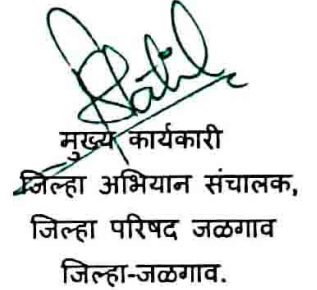 Patil
मुख्य कार्यकारी
जिल्हा अभियान संचालक,
जिल्हा परिषद जळगाव
जिल्हा-जळगाव.